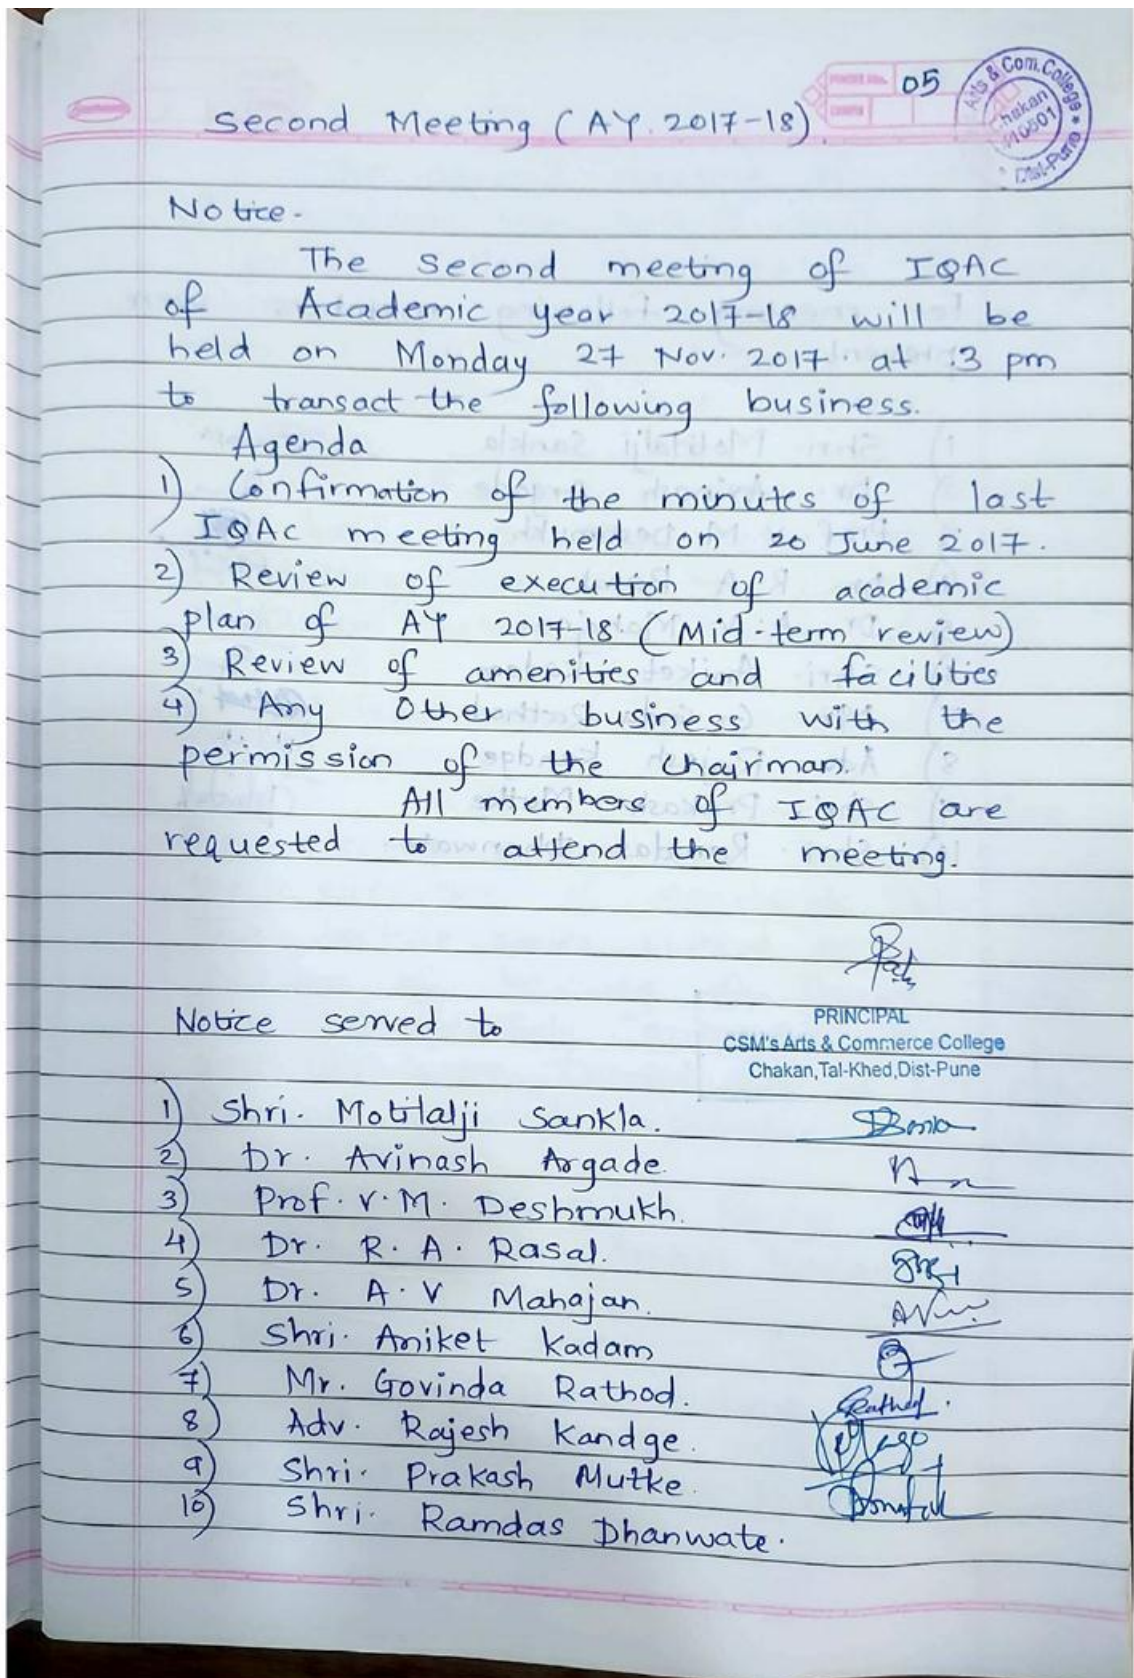 05
Arts & Com. College
Chakan
410501
Dist-Pune
Second Meeting (AY. 2017-18)
Notice.
The second meeting of IQAC
of Academic year 2017-18 will be
held on Monday 27 Nov. 2017. at 3 pm
to transact the following business.
Agenda
1) Confirmation of the minutes of last
IQAC meeting held on 20 June 2017.
2) Review of execution of academic
plan of AY 2017-18 (Mid-term review)
3) Review of amenities and facilities
4) Any Other business with the
permission of the Chairman.
All members of IQAC are
requested to attend the meeting.
PRINCIPAL
Notice served to
CSM's Arts & Commerce College
Chakan,Tal-Khed,Dist-Pune
1) Shri. Motilalji Sankla.
2) Dr. Avinash Argade.
3) Prof. V.M. Deshmukh.
4) Dr. R. A. Rasal.
5) Dr. A. V Mahajan.
6) Shri. Aniket Kadam
7) Mr. Govinda Rathod. Rathod.
8) Adv. Rajesh Kandge.
9) Shri. Prakash Mutke.
10) Shri. Ramdas Dhanwate.